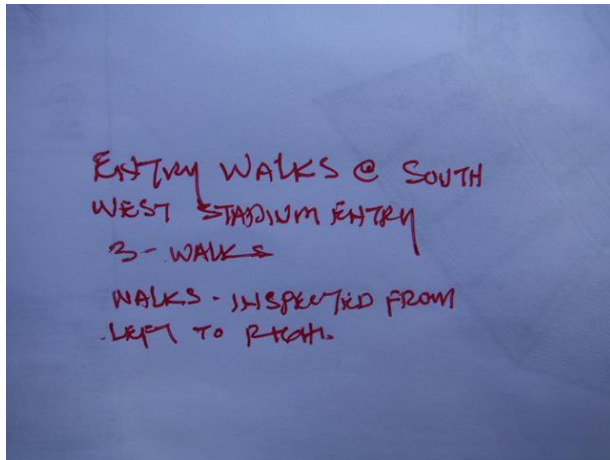 ENTRY WALKS @ SOUTH
WEST STADIUM ENTRY
3 - WALKS
WALKS - INSPECTED FROM
LEFT TO RIGHT.